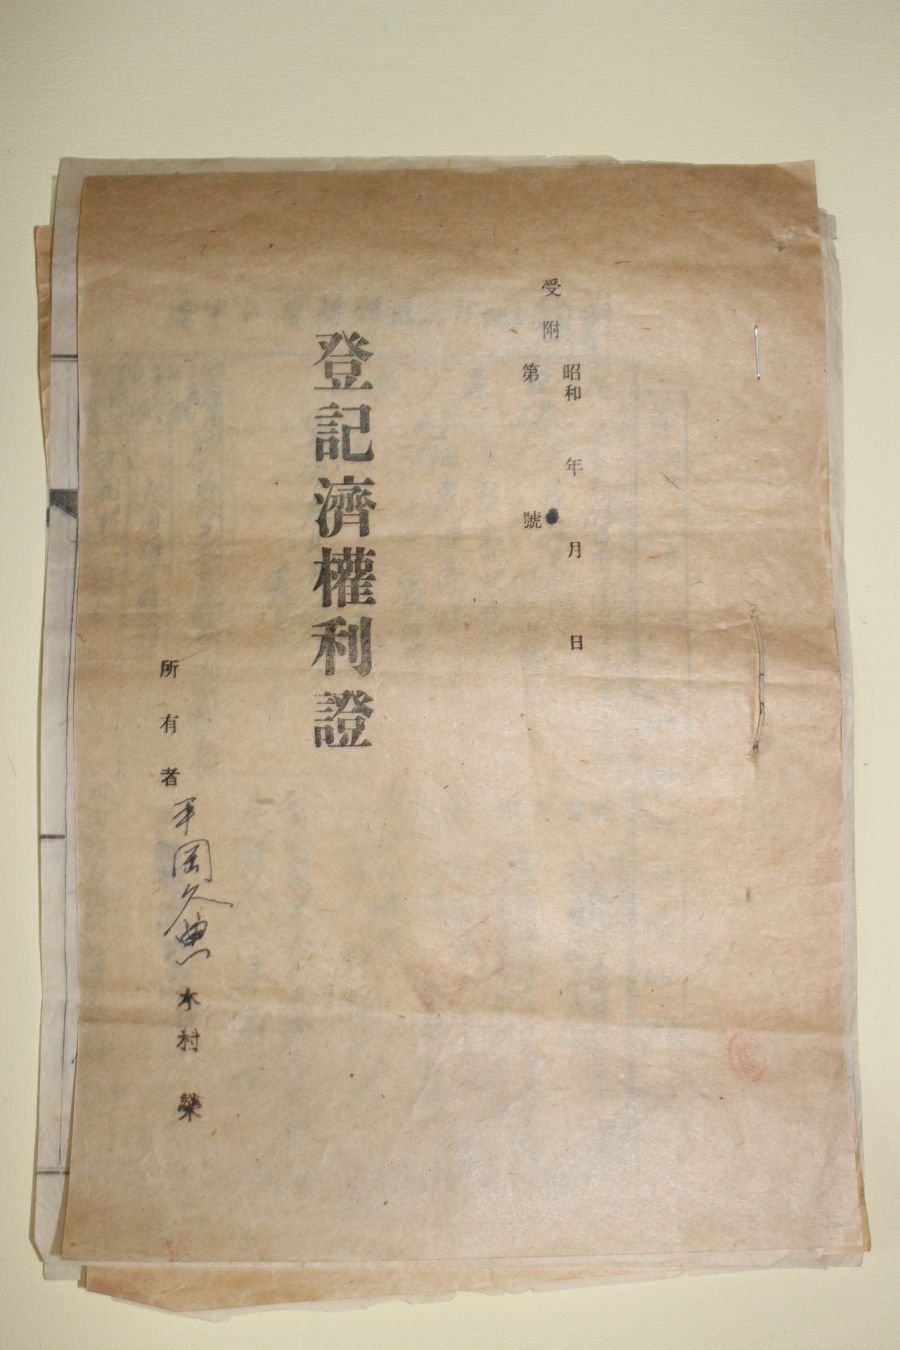 受附
昭和　年　月　日
第　號
登記濟權利證
所有者 平岡久 木村 榮